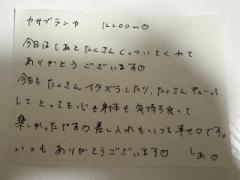 カサブランカ 12200m♡
今日はしあとたくさんくっついてくれて
ありがとうございます♡
今日もたくさんイタズラしたり、たくさんギューっ
してとっても心も身体も気持ち良くて
楽しかったです♡差し入れもいつも幸せです。
いつもありがとうございます♡ しあ♡